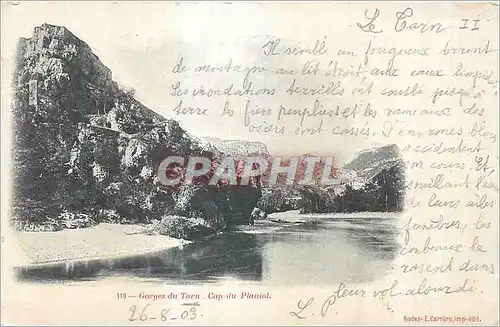 Le Tarn II
Il semble un fougueux torrent
de montagne, au lit étroit, aux eaux limpides
Ses inondations terribles ont courbé jusqu'à
terre les fiers peupliers et les rameaux des
osiers sont cassés. D'énormes blocs
accidentent
son cours. Et
de leurs ailes
funèbres, les
corbeaux le
rosent dans
leur vol alourdi.
CPARTHPHIL.COM
119 — Gorges du Tarn. Cap du Planiol.
26-8-03.
L. P
Rodez - E. Carrère, imp.-édit.